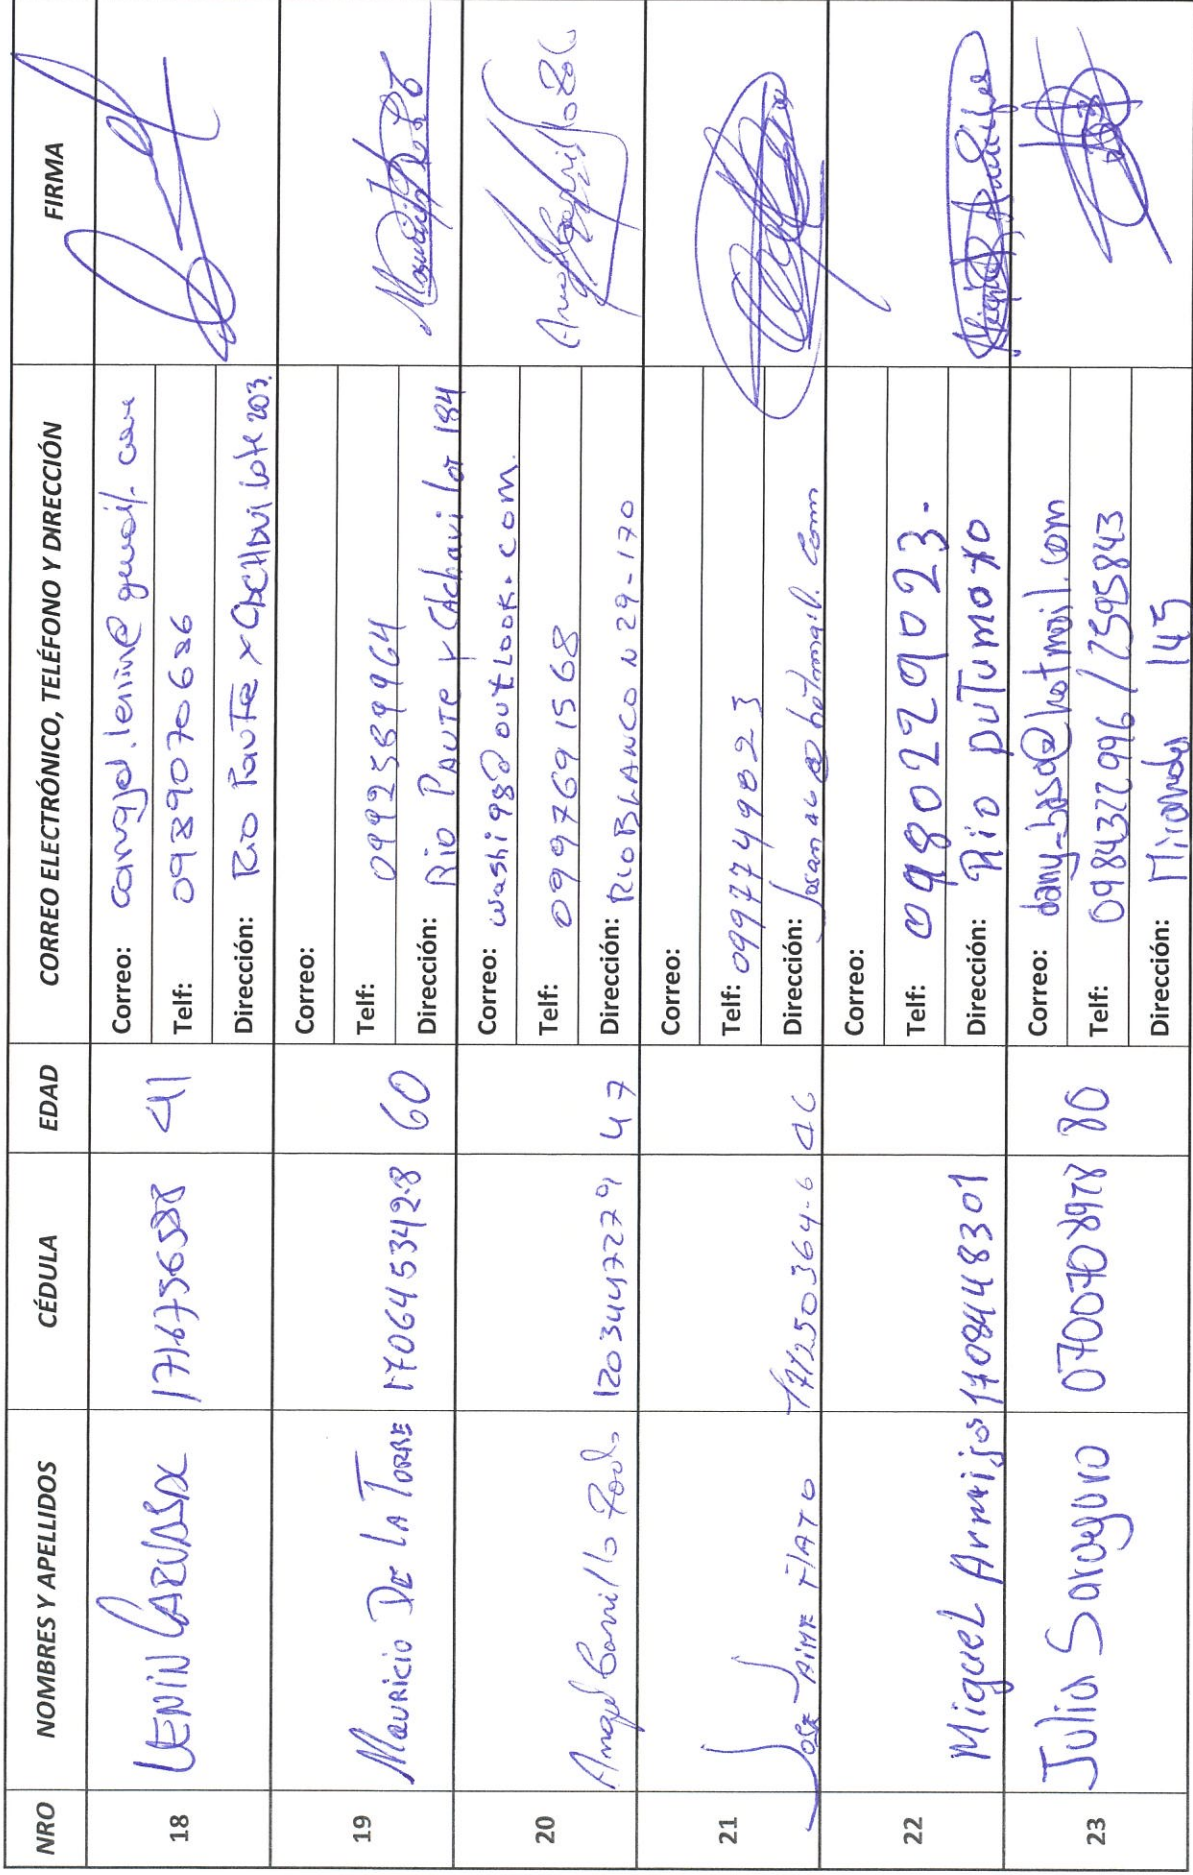 NRO NOMBRES Y APELLIDOS CÉDULA EDAD CORREO ELECTRÓNICO, TELÉFONO Y DIRECCIÓN FIRMA
18 LENIN 1716736588 41
Correo: carvajal.lenin@gmail.com
Telf: 0989070686
Dirección: Rio Paute y Cachavi lote 203.
19 Mauricio DE LA TORRE 170645342-8 60
Correo:
Telf: 0992589964
Dirección: Rio PAUTE y CAchavi lot 184
20 Angel 1203447279 47
Correo: washi98@outlook.com.
Telf: 0997691568
Dirección: RIO BLANCO N 29-170
21 Jose Jaime 171250364-6
Correo:
Telf: 0997749023
Dirección: @hotmail.com
22 Miguel Armijos 1708448301
Correo:
Telf: 0980229023.
Dirección: Rio puTumayo
23 Julio Saraguro 0700708978 80
Correo: dany_baso@hotmail.com
Telf: 0984322996 / 2595843
Dirección: Miranda 145